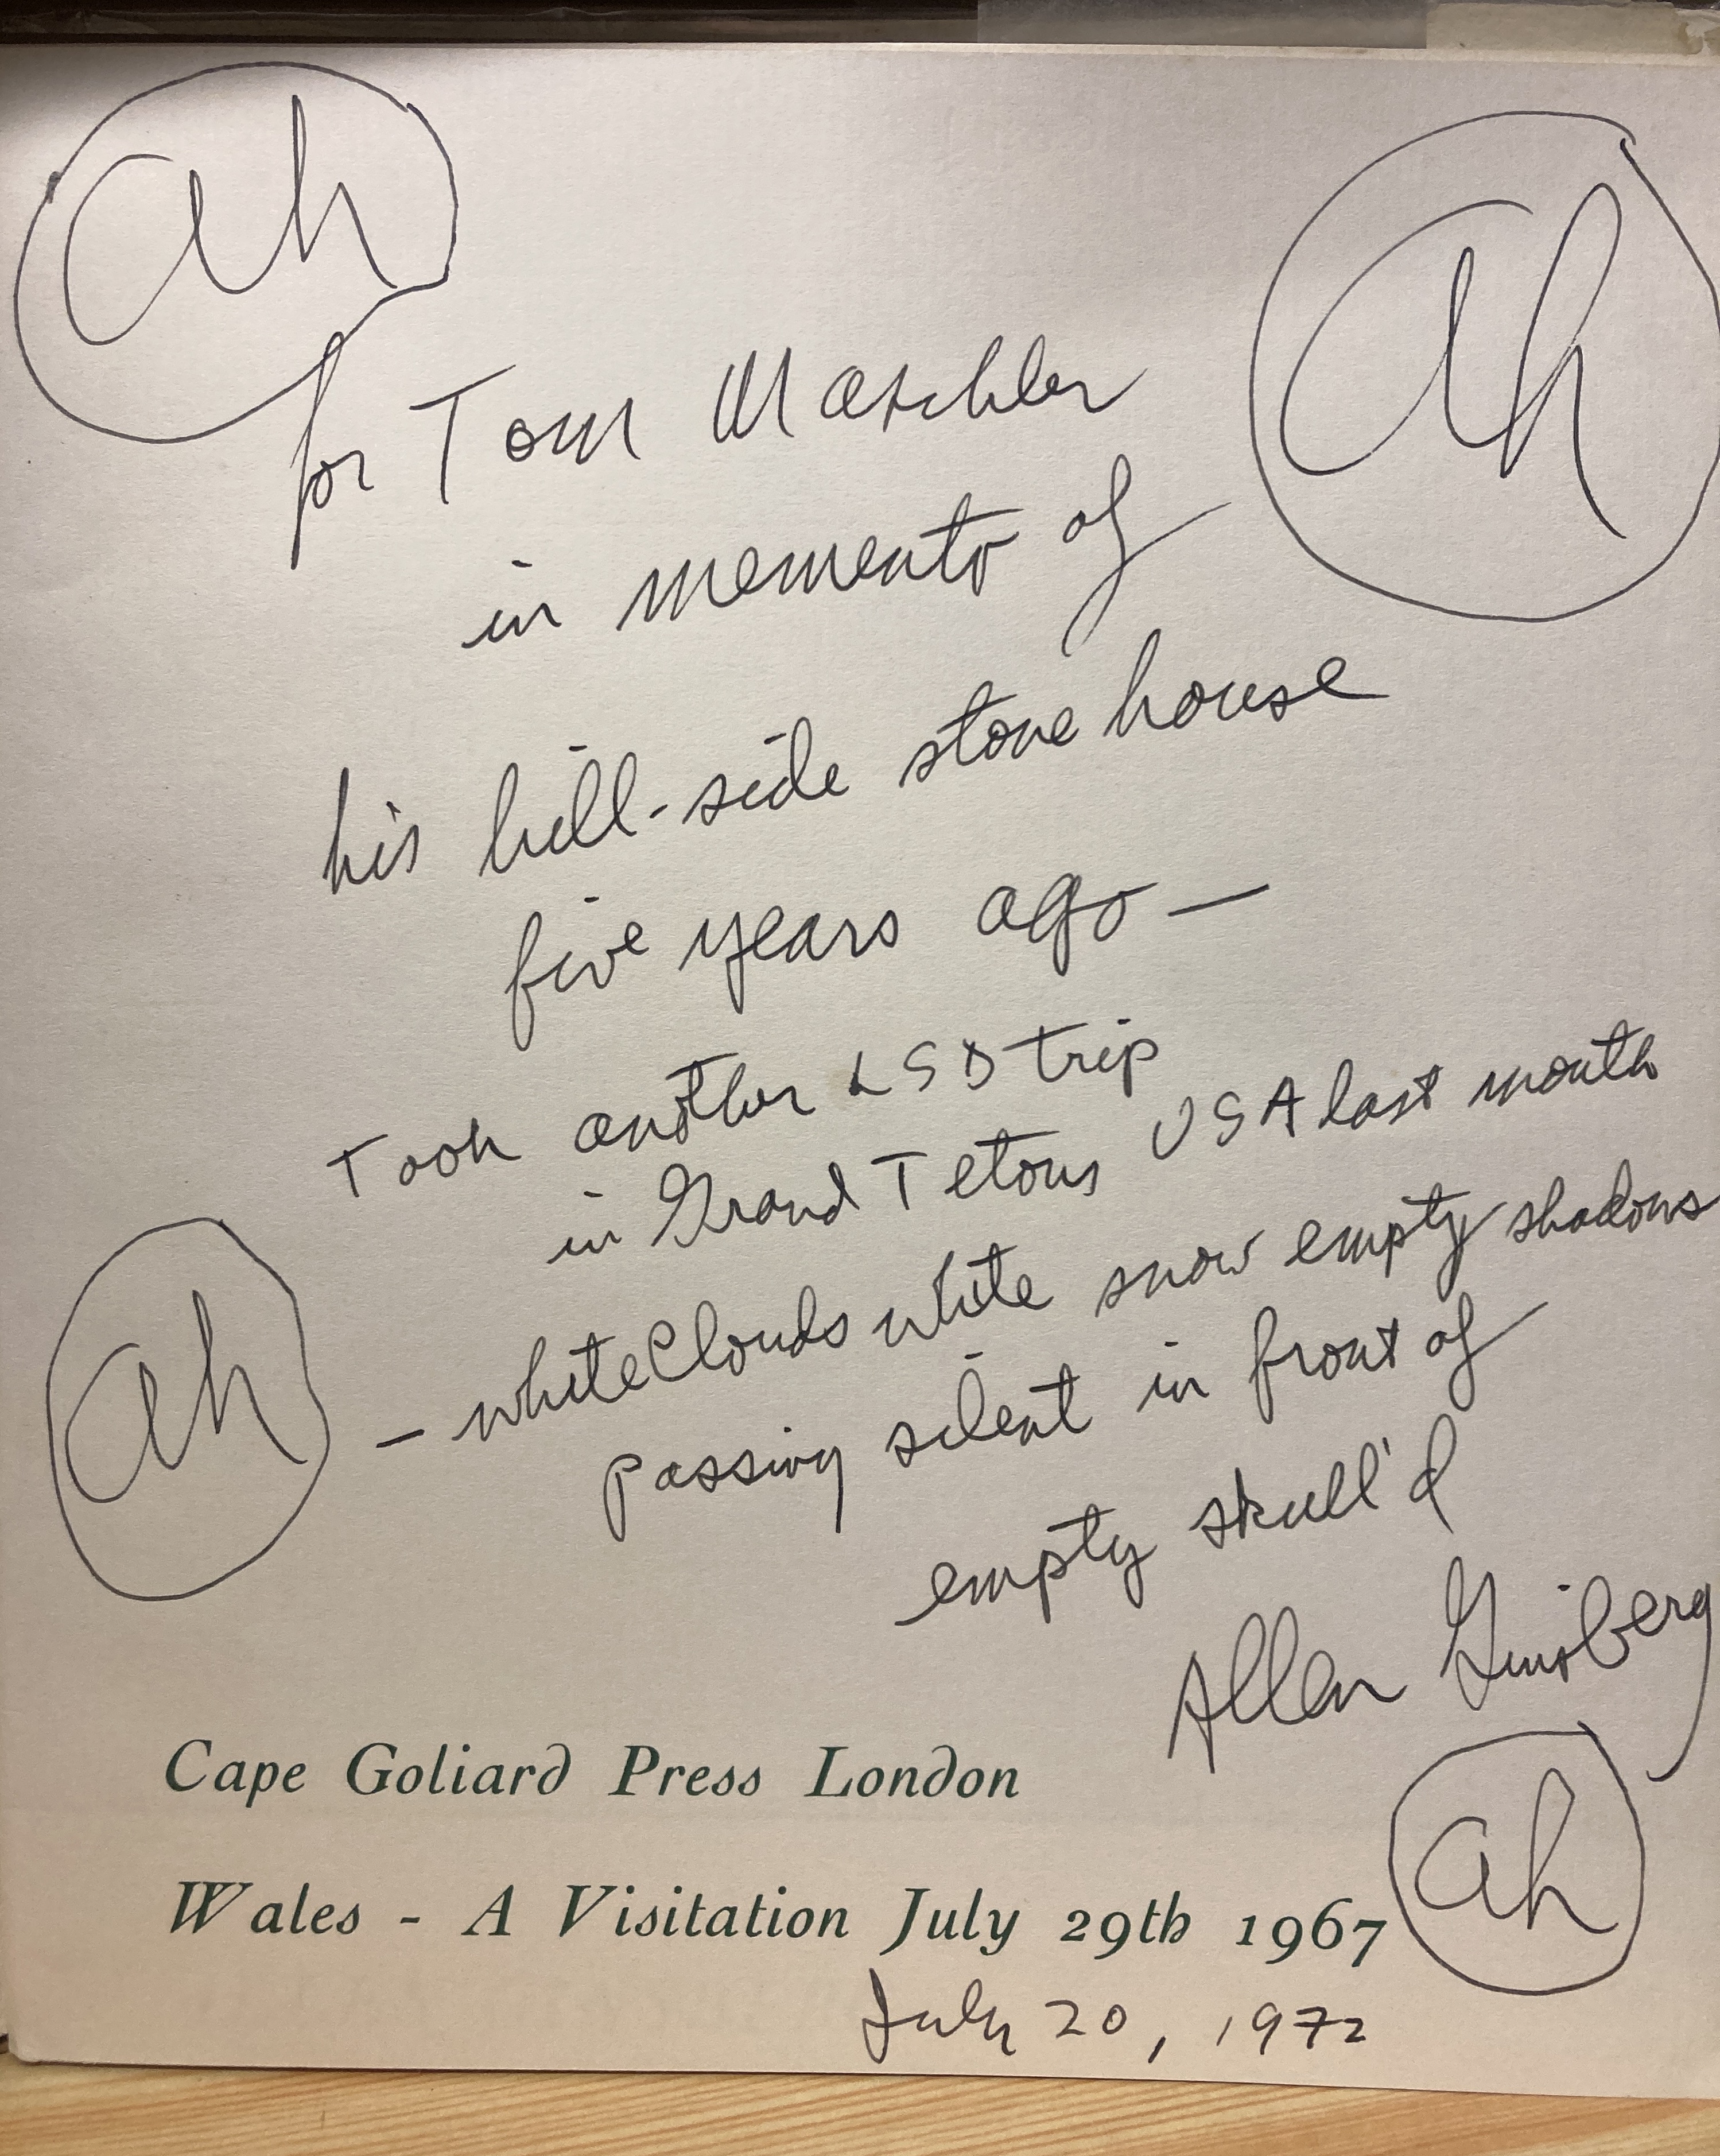 ah
Ah
for Tom Maschler
in memento of
his hill-side stone house
five years ago —
Took another LSD trip
in Grand Tetons USA last month
— white Clouds white snow empty shadows
passing silent in front of
empty skull'd
Allen Ginsberg
ah
ah
Cape Goliard Press London
Wales - A Visitation July 29th 1967
July 20, 1972